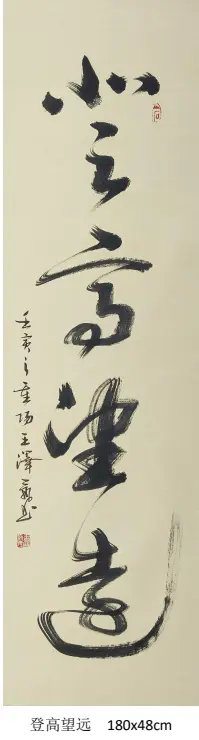 登高望遠
壬寅之重阳王澤书
登高望远 180x48cm